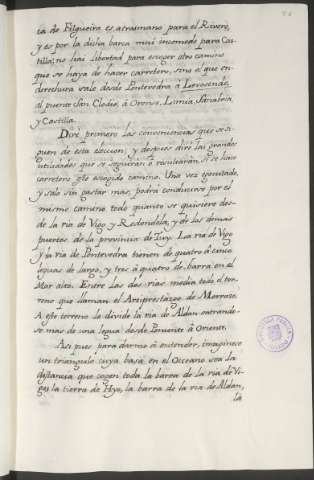 ta de Filgueira es atrasmano para el Rivero,
y es por la dicha barca mui incomodo para Cas-
tilla; no hai libertad para escoger otro camino
que se haya de hacer carretero, sino el que en-
derechura vaia desde Pontevedra á
al puente San Clodio, á Orense, Limia, Sanabria,
y Castilla.
Diré primero las conveniencias que se si-
guen de esta eleccion; y despues dire las grandes
utilidades que se seguirán ó resultarán, si se hace
carretero este escogido camino. Una vez egecutado,
y solo sin gastar mas, podrá conducirse por el
mismo camino todo quanto se quisiere des-
de la ria de Vigo y Redondela, y de los demais
puertos de la provincia de Tuy. La ria de Vigo
y la ria de Pontevedra tienen de quatro á cinco
leguas de largo, y tres á quatro de barra en el
Mar alto. Entre las dos rias media todo el ter-
reno que llaman el Arciprestazgo de Morrazo.
A este terreno la divide la ria de Aldan entrando-
se mas de una legua desde Poniente á Oriente.
Asi pues para darme á entender, imaginese
un triangulo cuya basa en el Occeano sea la
distancia que cogen toda la barra de la ria de Vi-
go, la tierra de Hyo, la barra de la ria de Aldan,
la